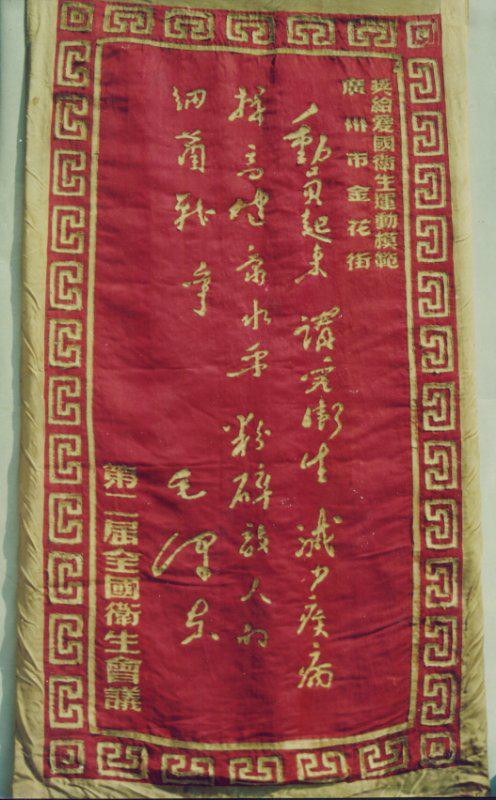 奬給愛國衛生運動模範
廣州市金花街
動員起來 講究衛生 減少疾病
提高健康水平 粉碎敌人的
细菌战争
毛澤东
第二屆全國衛生會議